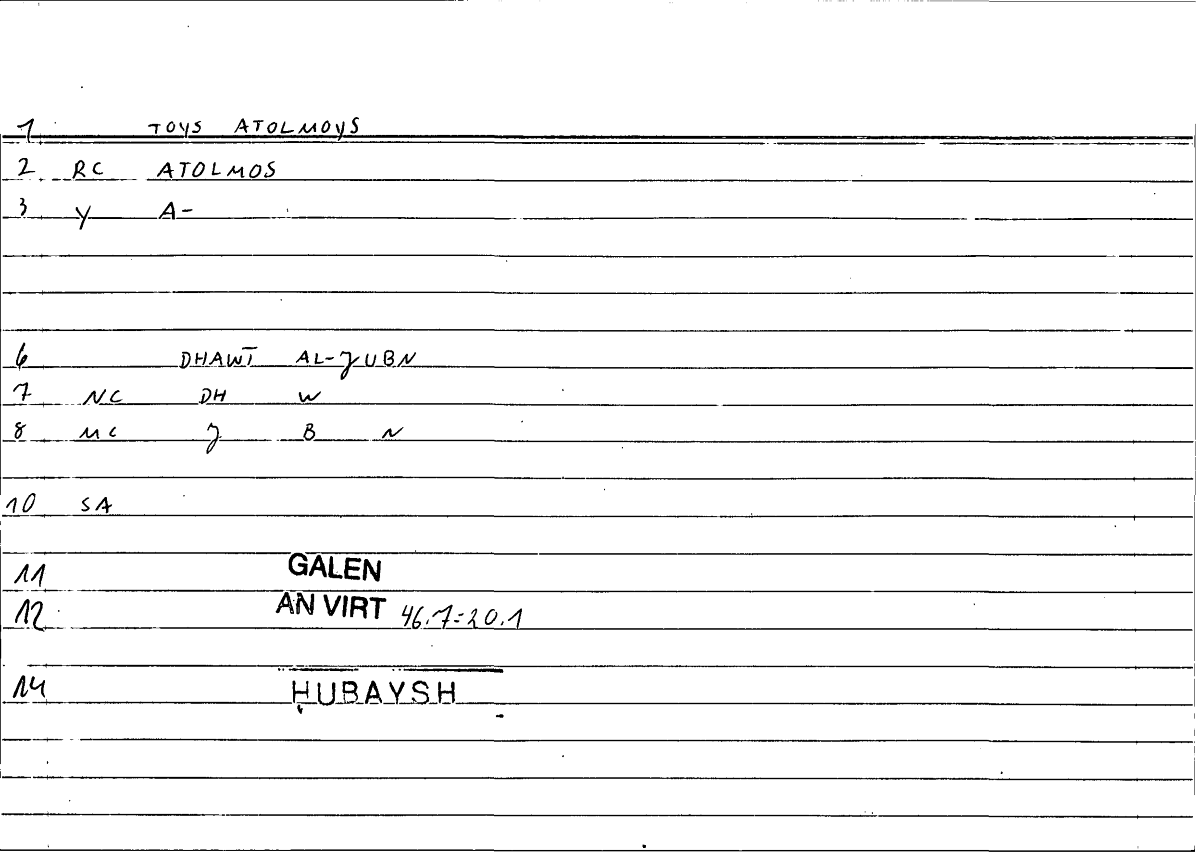 1 TOYS ATOLMOYS
2 RC ATOLMOS
3 Y A-
6 DHAWĪ AL-JUBN
7 NC DH W
8 MC J B N
10 SA
11 GALEN
12 AN VIRT 46.7=20.1
14 ḤUBAYSH